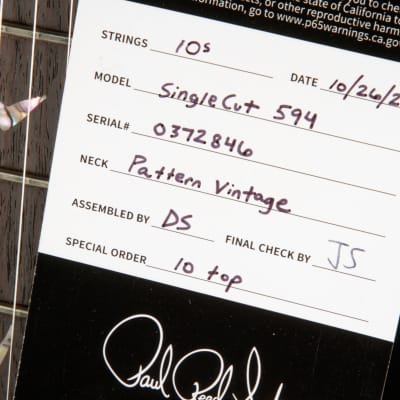 state of California to
information, go to www.p65warnings.ca.gov
STRINGS 10s DATE 10/26/2
MODEL SingleCut 594
SERIAL# 0372846
NECK Pattern Vintage
ASSEMBLED BY DS FINAL CHECK BY JS
SPECIAL ORDER 10 top
Paul Reed